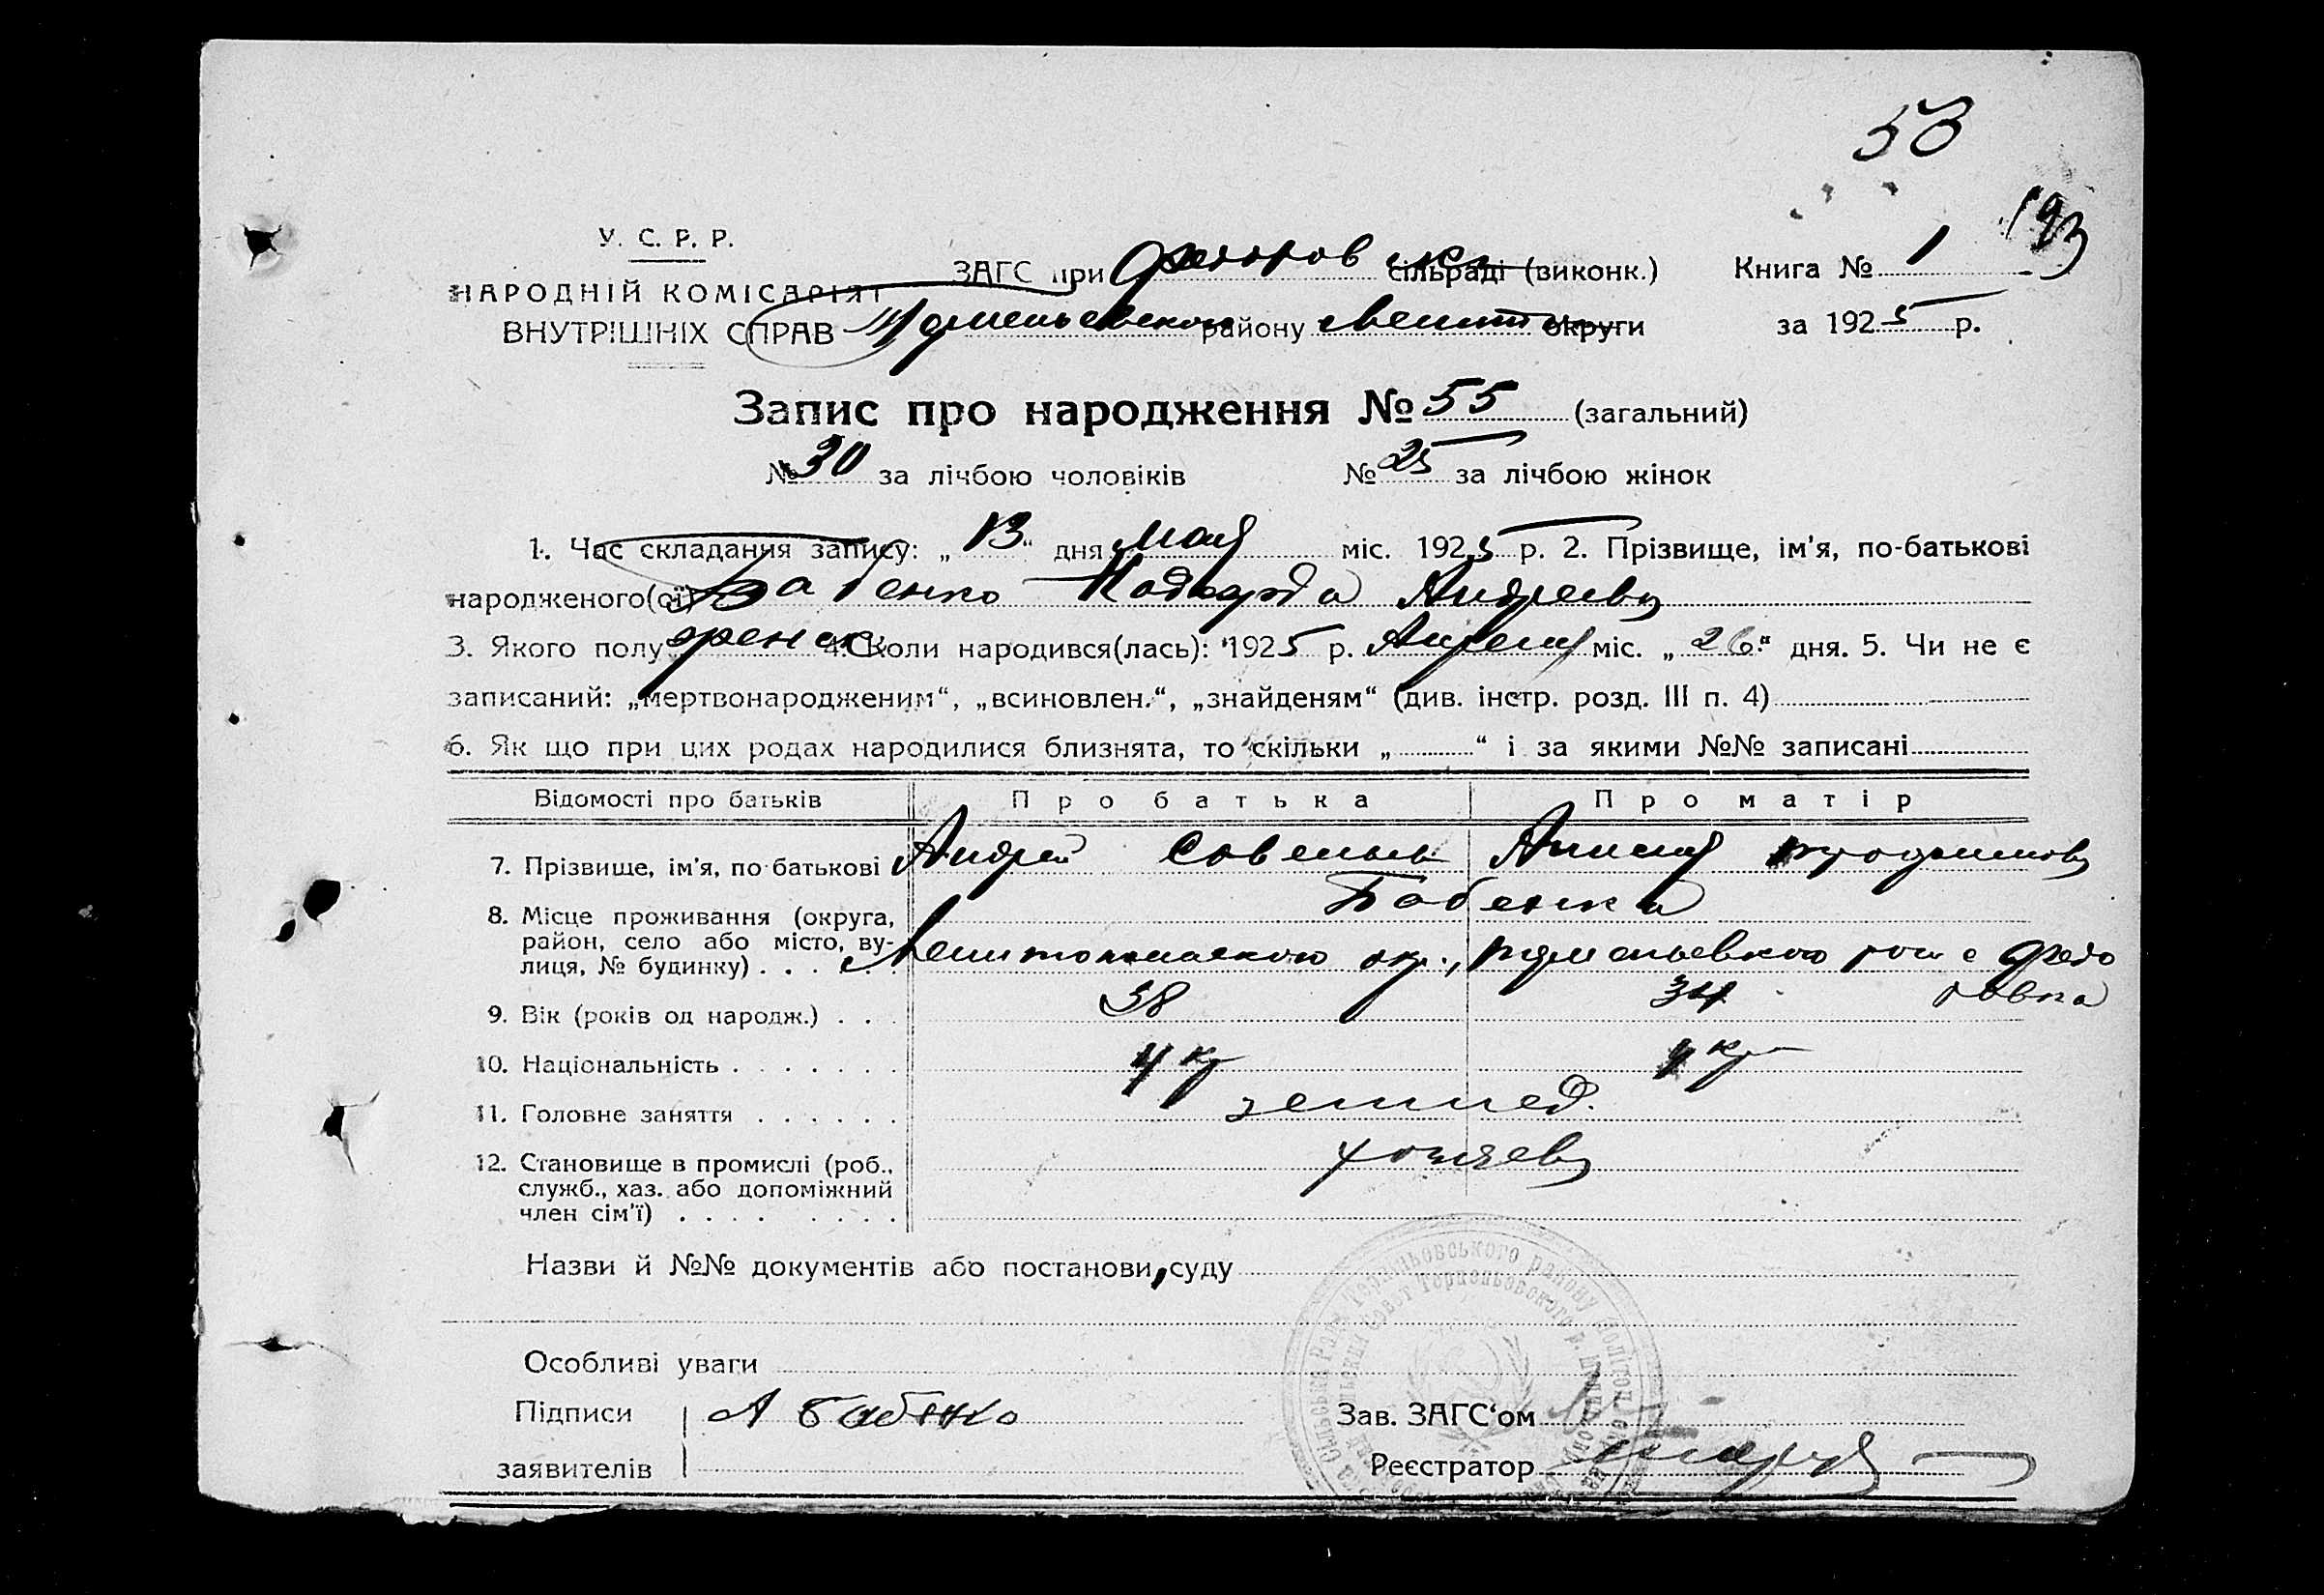 53
193
У. С. Р. Р.
НАРОДНІЙ КОМІСАРІЯТ
ВНУТРІШНІХ СПРАВ
ЗАГС при Федоров ск сільраді (виконк.) Книга № 1
району округи за 1925 р.
Запис про народження № 55 (загальний)
№ 30 за лічбою чоловіків № 25 за лічбою жінок
1. Час складання запису: „13“ дня мая міс. 1925 р. 2. Прізвище, ім'я, по-батькові
народженого(ої) Бабенко Андреевн
3. Якого полу женск 4. Коли народився(лась): 1925 р. Апреля міс. „26“ дня. 5. Чи не є
записаний: „мертвонародженим“, „всиновлен.“, „знайденям“ (див. інстр. розд. III п. 4)
6. Як що при цих родах народилися близнята, то скільки „ “ і за якими №№ записані
Відомості про батьків Про батька Про матір
7. Прізвище, ім'я, по-батькові Андрей Савельев
Бабенко
8. Місце проживання (округа,
район, село або місто, ву-
лиця, № будинку) . . . окр., с Федо
ровка
9. Вік (років од народж.) . . . 38 34
10. Національність . . . . . . . Укр Укр
11. Головне заняття . . . . . . земпед.
12. Становище в промислі (роб.,
служб., хаз. або допоміжний
член сім'ї) . . . . . . . .
Назви й №№ документів або постанови суду
Особливі уваги
Підписи А Бабенко Зав. ЗАГС'ом
заявителів Реєстратор